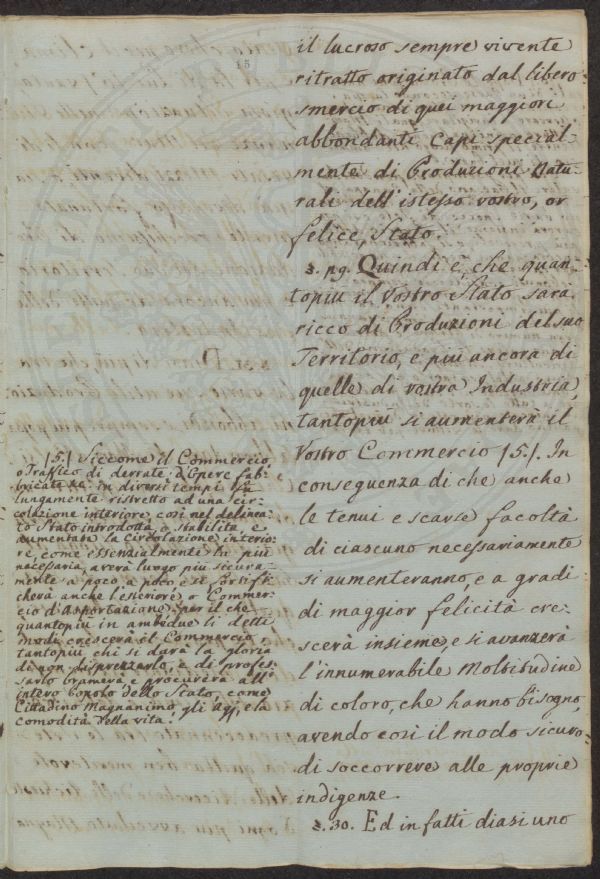 15
il lucroso sempre vivente
ritratto originato dal libero
smercio di quei maggiori
abbondanti Capi special-
mente di Produzioni Natu-
rali dell'istesso vostro, or
felice, Stato.
§. 29. Quindi è, che quan-
topiù il Vostro Stato sarà
ricco di Produzioni del suo
Territorio, e più ancora di
quelle di vostra Industria,
tantopiù si aumenterà il
Vostro Commercio /5/. In
conseguenza di che anche
le tenui e scarse facoltà
di ciascuno necessariamente
si aumenteranno, e a gradi
di maggior felicità cre-
scerà insieme, e si avanzerà
l'innumerabile Moltitudine
di coloro, che hanno bisogno,
avendo così il modo sicuro
di soccorrere alle proprie
indigenze.
§. 30. Ed in fatti diasi uno
/5/ Siccome il Commercio,
o Traffico di derrate, d'Opere fab-
bricate in diversi tempi fù
lungamente ristretto ad una cir-
colazione interiore, così nel delinea-
to Stato introdotta, o stabilita, e
aumentata la Circolazione interio-
re, come essenzialmente la più
necessaria, averà luogo più sicura-
mente a poco a poco, e si fortifi-
cherà anche l'esteriore, o Commer-
cio d'Asportazione; per il che
quantopiù in ambidue li detti
modi crescerà il Commercio,
tantopiù chi si darà la gloria
di non disprezzarlo, e di profes-
sarlo bramerà e procurerà all'
intero Popolo dello Stato, come
Cittadino Magnanimo, gli Agj, e la
comodità della vita.